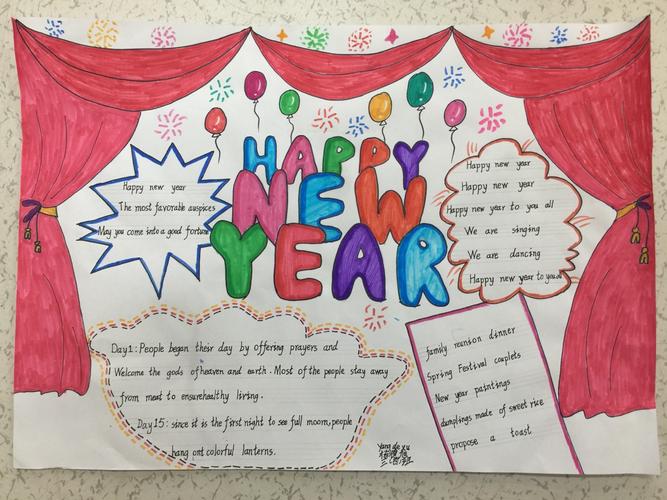 HAPPY
NEW
YEAR
Happy new year
The most favorable auspices
May you come into a good fortune
Happy new year
Happy new year
Happy new year to you all
We are singing
We are dancing
Happy new year to you all
Day1: People began their day by offering prayers and
Welcome the gods ofheaven and earth. Most of the people stay away
from meat to ensurehealthy living.
Day15: since it is the first night to see full moorn, people
hang ont colorful lanterns.
family reunion dinner
Spring Festival couplets
New year paintings
dumplings made of sweet rice
propose a toast